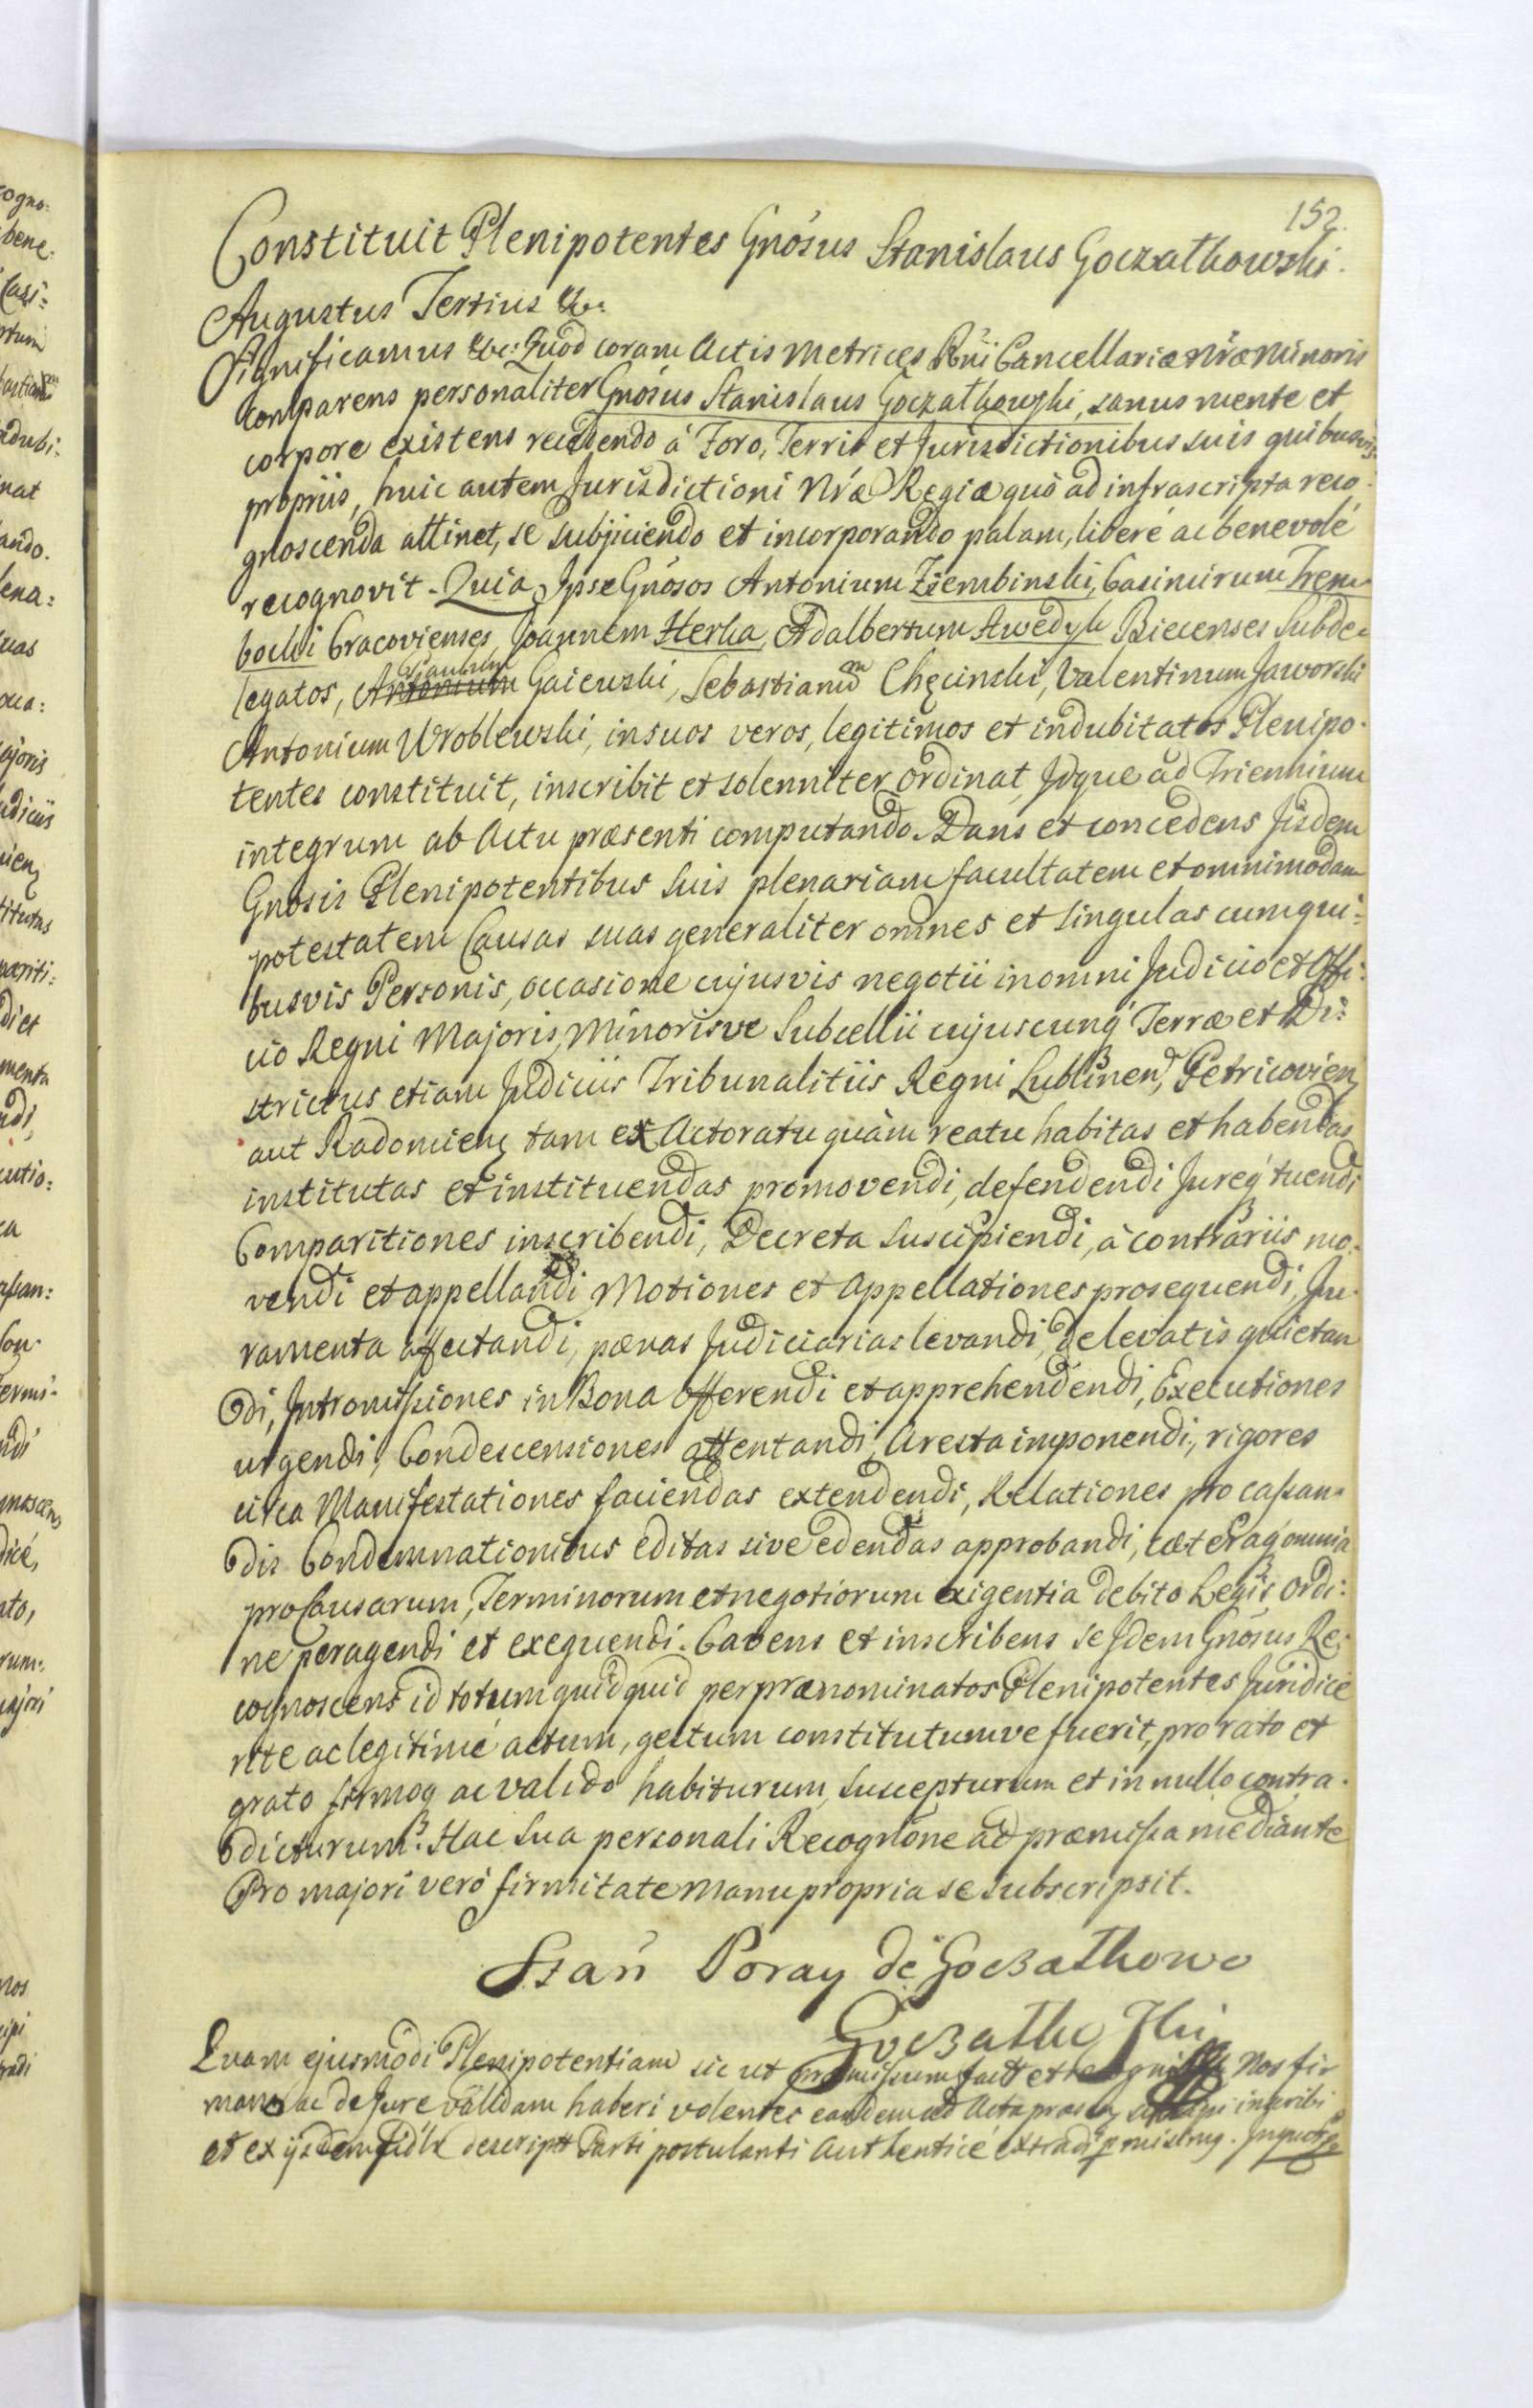 152.
Constituit Plenipotentes Gnosus Stanislaus Goczałkowski.
Augustus Tertius &c:
Significamus &c: Quod coram Actis Metrices Rñi Cancellariæ Nræ Minoris
comparens personaliter Gnosus Stanislaus Goczałkowski, sanus mente et
corpore existens recedendo à Foro, Terris et Jurisdictionibus suis quibusvis
propriis, huic autem Jurisdictioni Nræ Regiæ quò ad infrascripta reco-
gnoscenda attinet, se subjiciendo et incorporando palam, liberé ac benevolé
recognovit. Quia Ipse Gnosos Antonium Ziembinski, Casimirum Trem
bocki Cracovienses, Joannem Herka, Adalbertum Awedyk Biecenses Subde-
legatos, Claudium
Antonium Gaiewski, Sebastianum Chęcinski, Valentinum Jaworski
Antonium Wroblewski, in suos veros, legitimos et indubitatos Plenipo-
tentes constituit, inscribit et solenniter ordinat, Idque ad Triennium
integrum ab Actu præsenti computando. Dans et concedens Iisdem
Gnosis Plenipotentibus suis plenariam facultatem et omnimodam
potestatem Causas suas generaliter omnes et singulas cum qui-
busvis Personis, occasione cujusvis negotii in omni Judicio et Offi-
cio Regni Majoris, Minorisve Subcellii cujuscunq Terræ et Di-
strictus etiam Judiciis Tribunalitiis Regni Lublinen, Petricovien
aut Radomien tam ex Actoratu quàm reatu habitas et habendas
institutas et instituendas promovendi, defendendi Jureq tuendi
Comparitiones inscribendi, Decreta suscipiendi, à contrariis mo-
vendi et appellandi, Motiones et Appellationes prosequendi, Ju-
ramenta affectandi, pænas Judiciarias levandi, de levatis quietan
di, Intromissiones in Bona offerendi et apprehendendi, Executiones
urgendi, Condescensiones attentandi, Aresta imponendi, rigores
circa Manifestationes faciendas extendendi, Relationes pro cassan-
dis Condemnationibus editas sive edendas approbandi, cæteraq omnia
pro Causarum, Terminorum et negotiorum exigentia debito Legis Ordi-
ne peragendi et exequendi. Cavens et inscribens se Idem Gnosus Re-
cognoscens id totum quidquid per prænominatos Plenipotentes Juridicè
rite ac legitimé actum, gestum constitutumve fuerit, pro rato et
grato firmoq ac valido habiturum, suscepturum et in nullo contra-
dicturum. Hac sua personali Recognõne ad præmissa mediante
Pro majori veró firmitate Manu propria se subscripsit.
Stañ Poray de Goczałkowo
Goczałkowski
Quam ejusmodi Plenipotentiam sic ut præmissum fact et Nos fir
mam ac de Jure validam haberi volentes eandem ad Acta præsen inscribi
et ex ijsdem descript Parti postulanti Authenticé extradi